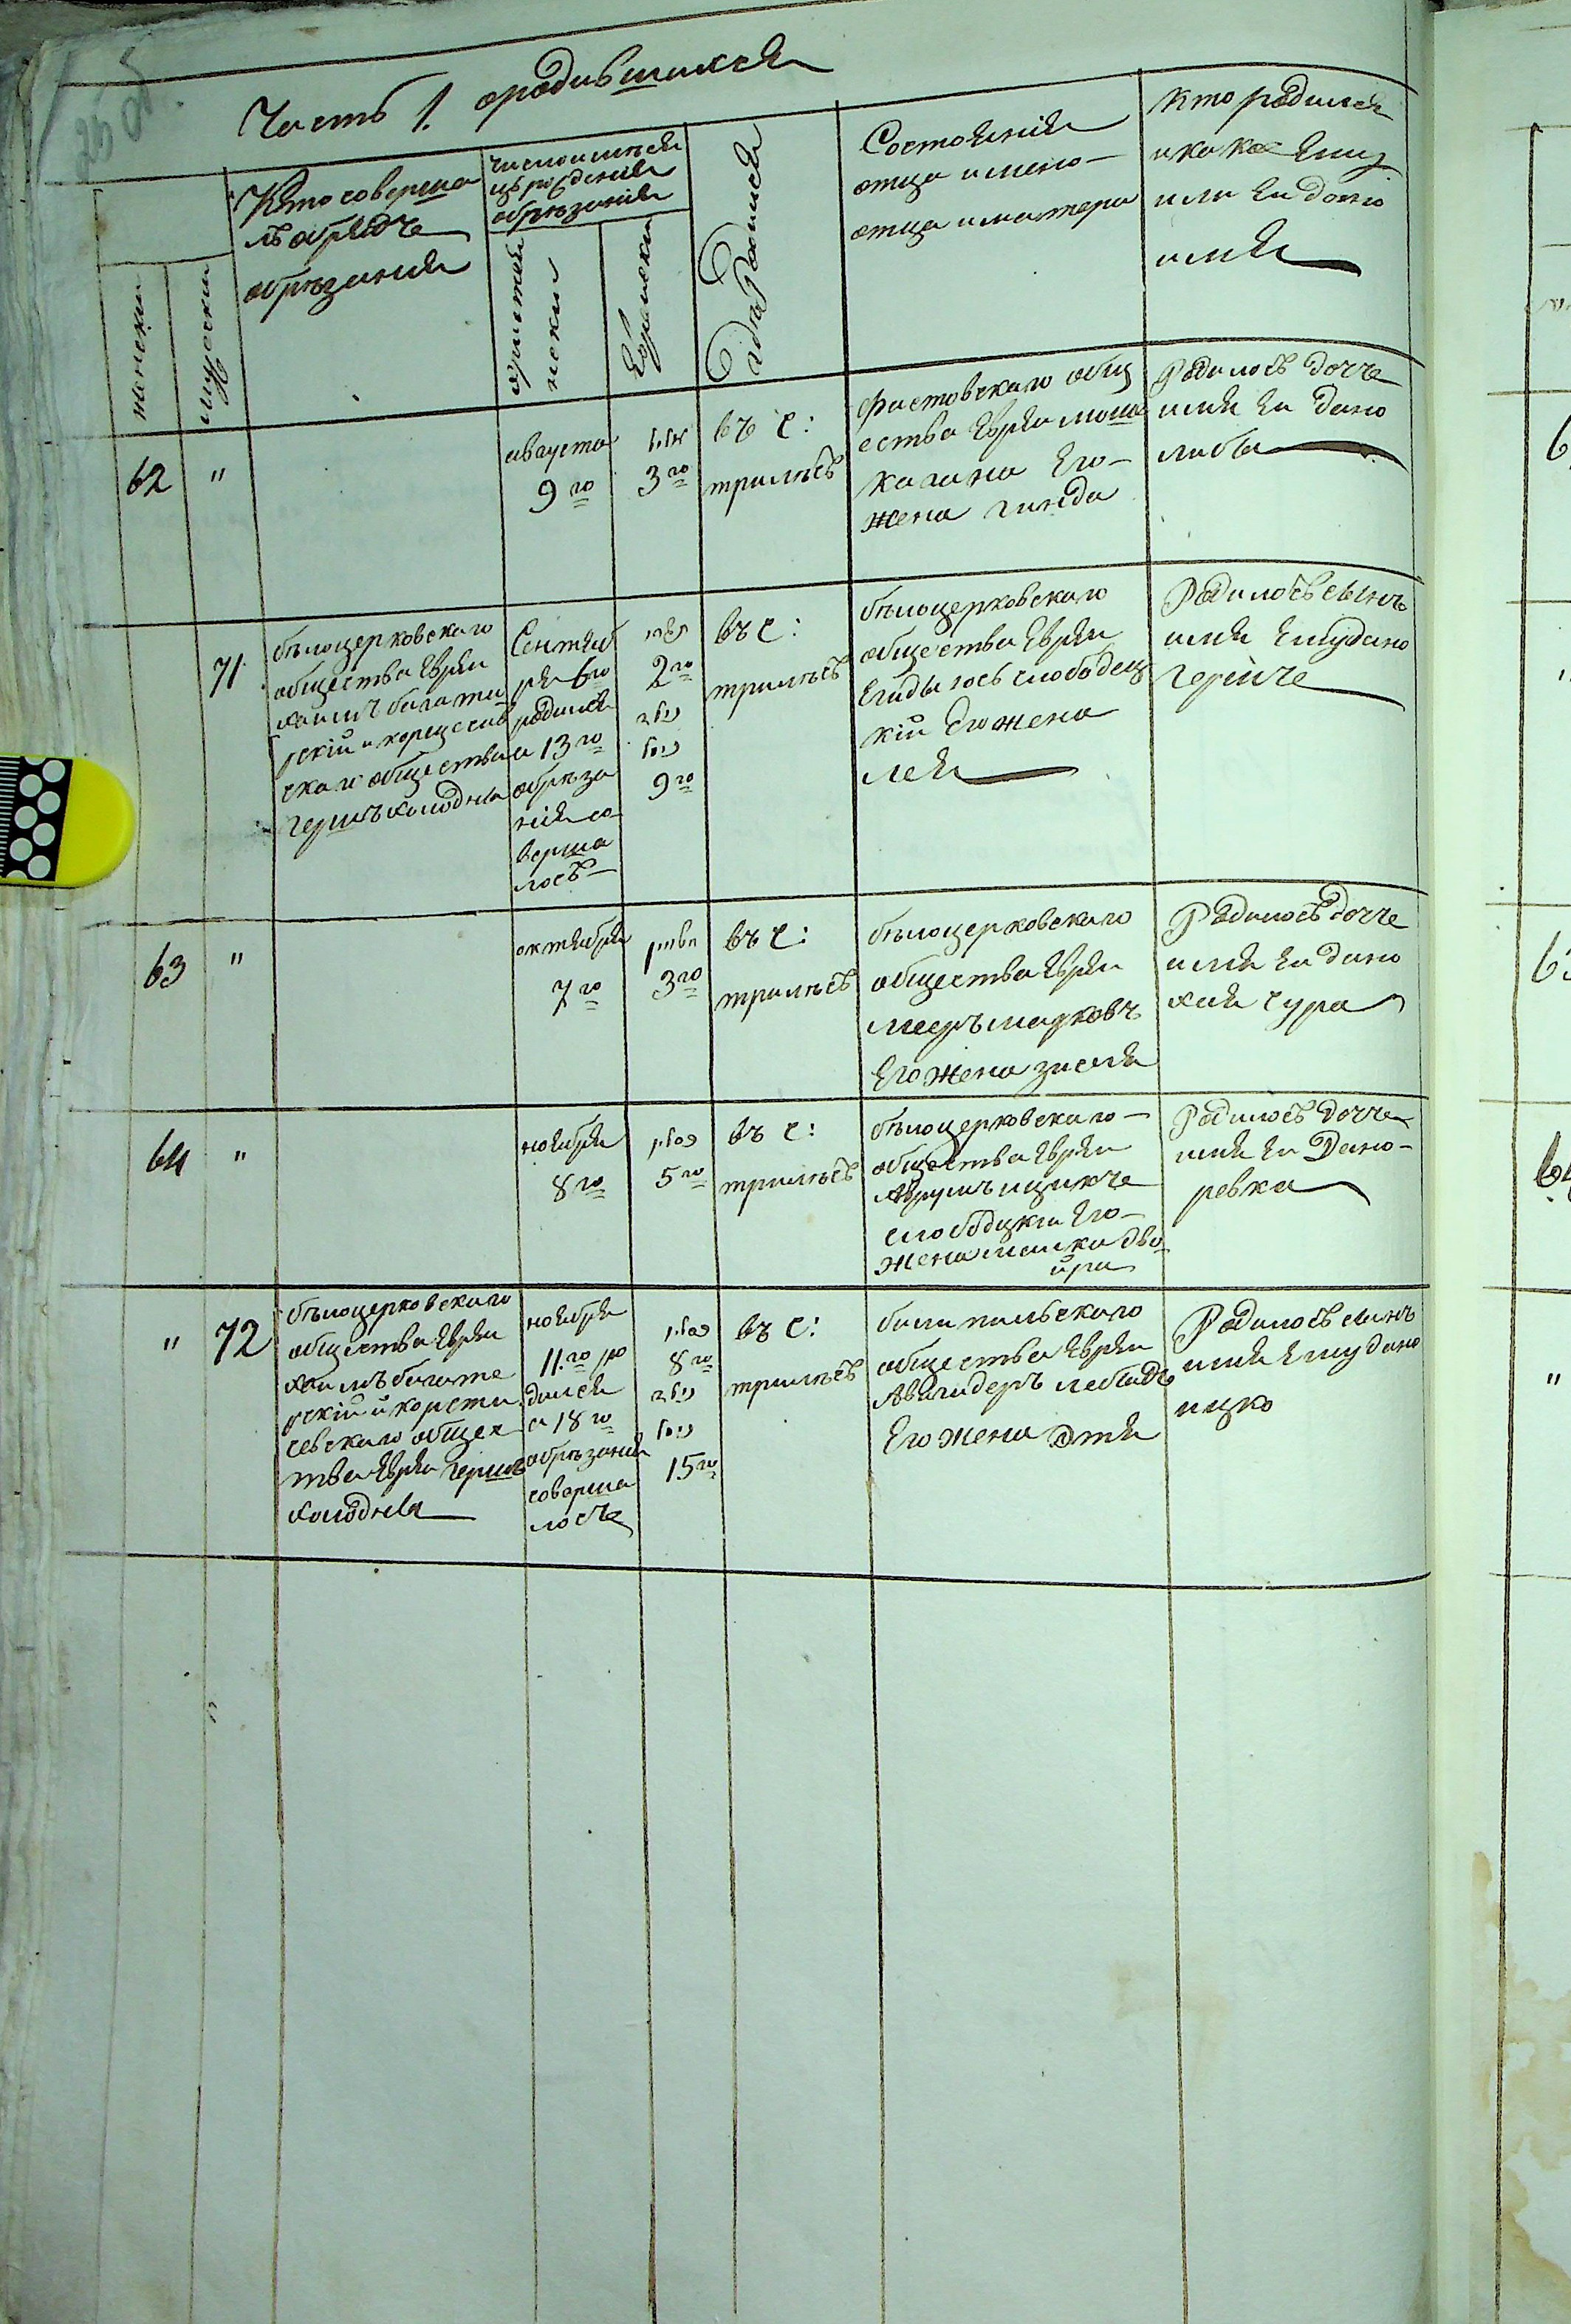 Часть 1. ородившихся
женски
мужески
Кто соверша
лъ обрядъ
обрѣзания
число и мѣся
цъ рожденія
обрѣзанія
християн
нески
Еврейски
гдѣ родился
Состоянія
отца имено
отца и матери
Кто родился
и какое Ему
или Ей дано
имя
62 "
августа
9 го
אלול
3 го
въ с:
трилѣсѣ
фастовскаго общ
ества Еврея мош
кагана Его
жена гинда
Родилосъ дочъ
имя Ей дано
либа
71
бѣлоцерковскаго
общества Еврея
хаимъ богати
рскій и
скаго общества
гершъ колодня
Сентяб
ря 6го
родился
а 13 го
обрѣза
нія со
верша
лосъ
תשרי
2 го
9 го
въ с:
трилѣсѣ
бѣлоцерковскаго
общества Еврея
юсь слободец
кій Его жена
лея
Родилосъ сынъ
имя Ему дано
гершъ
63 "
октября
7 го
3 го
въ с:
трилѣсѣ
бѣлоцерковскаго
общества Еврея
мееръ марковъ
Его жена зисля
Родилосъ дочъ
имя Ей дано
хая сура
64 "
ноября
8 го
כסלו
5 го
въ с:
трилѣсѣ
бѣлоцерковскаго
общества Еврея
Аврумъ ицикъ
слободцки Его
жена малка дво
йра
Родилосъ дочъ
имя Ей Дано
ревка
" 72
бѣлоцерковскаго
общества Еврея
хаимъ богате
рскій и
севскаго общес
тва Еврея гершъ
колодня
ноября
11 го ро
дился
а 18 го
обрѣзания
соверша
лосъ
כסלו
8 го
15 го
въ с:
трилѣсѣ
общества Еврея
Авигидеръ лебидъ
Его жена Этя
Родилосъ сынъ
имя Ему дано
ицко